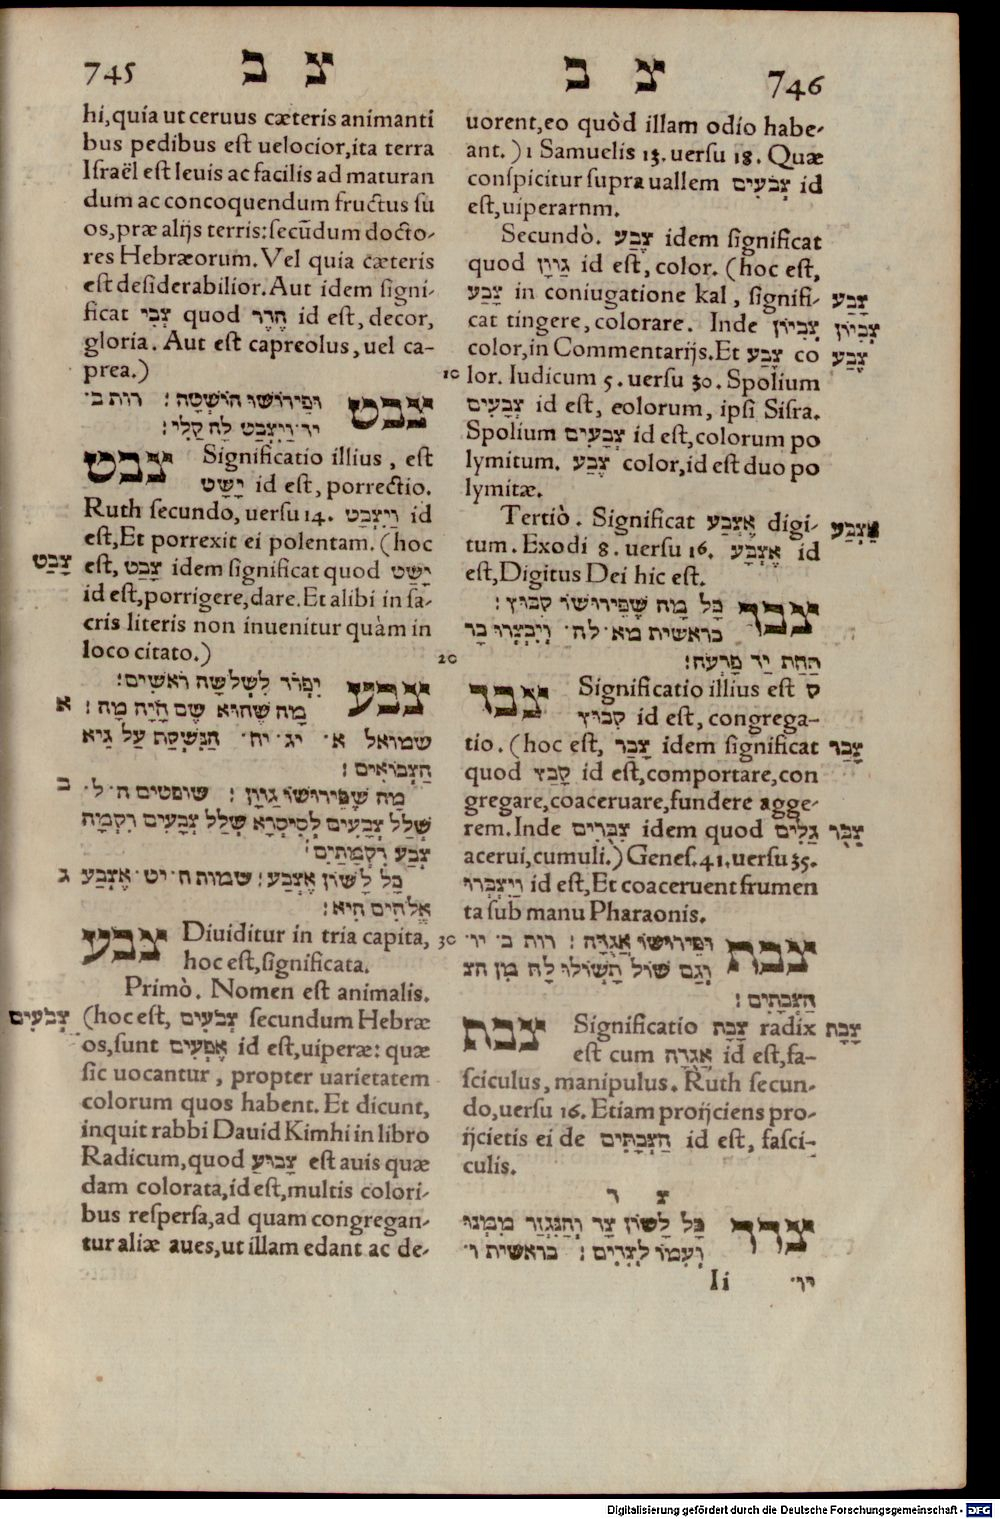 745 צ ב
hi,quia ut ceruus cæteris animanti
bus pedibus est uelocior,ita terra
Israël est leuis ac facilis ad maturan
dum ac concoquendum fructus su
os,præ alijs terris:secũdum docto-
res Hebræorum. Vel quia cæteris
est desiderabilior. Aut idem signi-
ficat צְבִי quod הֶדֶר id est, decor,
gloria. Aut est capreolus, uel ca-
prea.)
צבט ופירושו הוֹשָׁטָה : רות ב·
יד וַיִּצְבָּט לָהּ קָלִי :
צבט Significatio illius, est
יָשַׁט id est, porrectio.
Ruth secundo, uersu 14. וַיִּצְבָּט id
est,Et porrexit ei polentam. (hoc
est, צָבַט idem significat quod יָשַׁט צָבַט
id est,porrigere,dare.Et alibi in sa-
cris literis non inuenitur quàm in
loco citato.)
צבע יִפָּרֵד לִשְׁלֹשָׁה רֹאשִׁים:
מָה שֶׁהוּא שֵׁם חַיָּה מָה : א
שמואל א· יג· יח· הַנִּשְׁקָף עַל גֵּיא
הַצְּבֹעִים :
מָה שֶׁפֵּירוּשׁוֹ גַּוָּן : שופטים ה· ל· ב
שְׁלַל צְבָעִים לְסִיסְרָא שְׁלַל צְבָעִים רִקְמָה
צֶבַע רִקְמָתַיִם :
כָּל לָשׁוֹן אֶצְבַּע : שמות ח· יט· אֶצְבַּע ג
אֱלֹהִים הִיא :
צבע Diuiditur in tria capita,
hoc est,significata.
Primò. Nomen est animalis.
(hoc est, צְבֹעִים secundum Hebræ צְבֹעִים
os,sunt אֶפְעִים id est,uiperæ: quæ
sic uocantur, propter uarietatem
colorum quos habent. Et dicunt,
inquit rabbi Dauid Kimhi in libro
Radicum,quod צָבוּעַ est auis quæ
dam colorata,id est,multis colori-
bus respersa,ad quam congregan-
tur aliæ aues,ut illam edant ac de-
צ ב 746
uorent,eo quòd illam odio habe-
ant.) 1 Samuelis 13. uersu 18. Quæ
conspicitur supra uallem צְבֹעִים id
est,uiperarnm.
Secundò. צֶבַע idem significat
quod גַּוָּון id est, color. (hoc est,
צָבַע in coniugatione kal, signifi- צָבַע
cat tingere, colorare. Inde צִבְיוֹן צִבְיוֹן
color,in Commentarijs.Et צֶבַע co צֶבַע
10 lor. Iudicum 5. uersu 30. Spolium
צְבָעִים id est, eolorum, ipsi Sisra.
Spolium צְבָעִים id est,colorum po
lymitum. צֶבַע color,id est duo po
lymitæ.
Tertiò. Significat אֶצְבַּע digi- אֶצְבַּע
tum. Exodi 8. uersu 16. אֶצְבַּע id
est,Digitus Dei hic est.
צבר כָּל מָה שֶׁפֵּירוּשׁוֹ קִבּוּץ :
בראשית מא· לה· וְיִצְבְּרוּ בָר
20 תַּחַת יַד פַּרְעֹה :
צבר Significatio illius est ס
קִבּוּץ id est, congrega-
tio. (hoc est, צָבַר idem significat צָבַר
quod קָבַץ id est,comportare,con
gregare,coaceruare,fundere agge-
rem. Inde צִבֻּרִים idem quod גַּלִּים צִבֻּר
acerui,cumuli.) Genes. 41. uersu 35.
וְיִצְבְּרוּ id est,Et coaceruent frumen
ta sub manu Pharaonis.
30 צבת ופירושו אֲגֻדָּה : רות ב· יו·
וְגַם שׁוֹל תָּשׁוֹלּוּ לָהּ מִן הצ
הַצְּבָתִים :
צבת Significatio צָבַת radix צָבַת
est cum אֲגֻדָּה id est,fa-
sciculus, manipulus. Ruth secun-
do,uersu 16. Etiam proijciens pro-
ijcietis ei de הַצְּבָתִים id est, fasci-
culis.
צ ד
צדד כָּל לָשׁוֹן צַד וְהַנִּגְזַר מִמֶּנּוּ
וְעִמּוֹ לַצְּדָדִים : בראשית ו·
Ii יו·
Digitalisierung gefördert durch die Deutsche Forschungsgemeinschaft - DFG